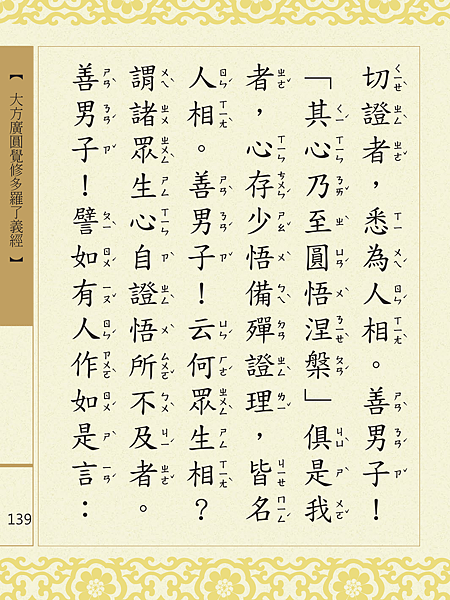 切證者，悉為人相。善男子！
「其心乃至圓悟涅槃」俱是我
者，心存少悟備殫證理，皆名
人相。善男子！云何眾生相？
謂諸眾生心自證悟所不及者。
善男子！譬如有人作如是言：
【大方廣圓覺修多羅了義經】
139